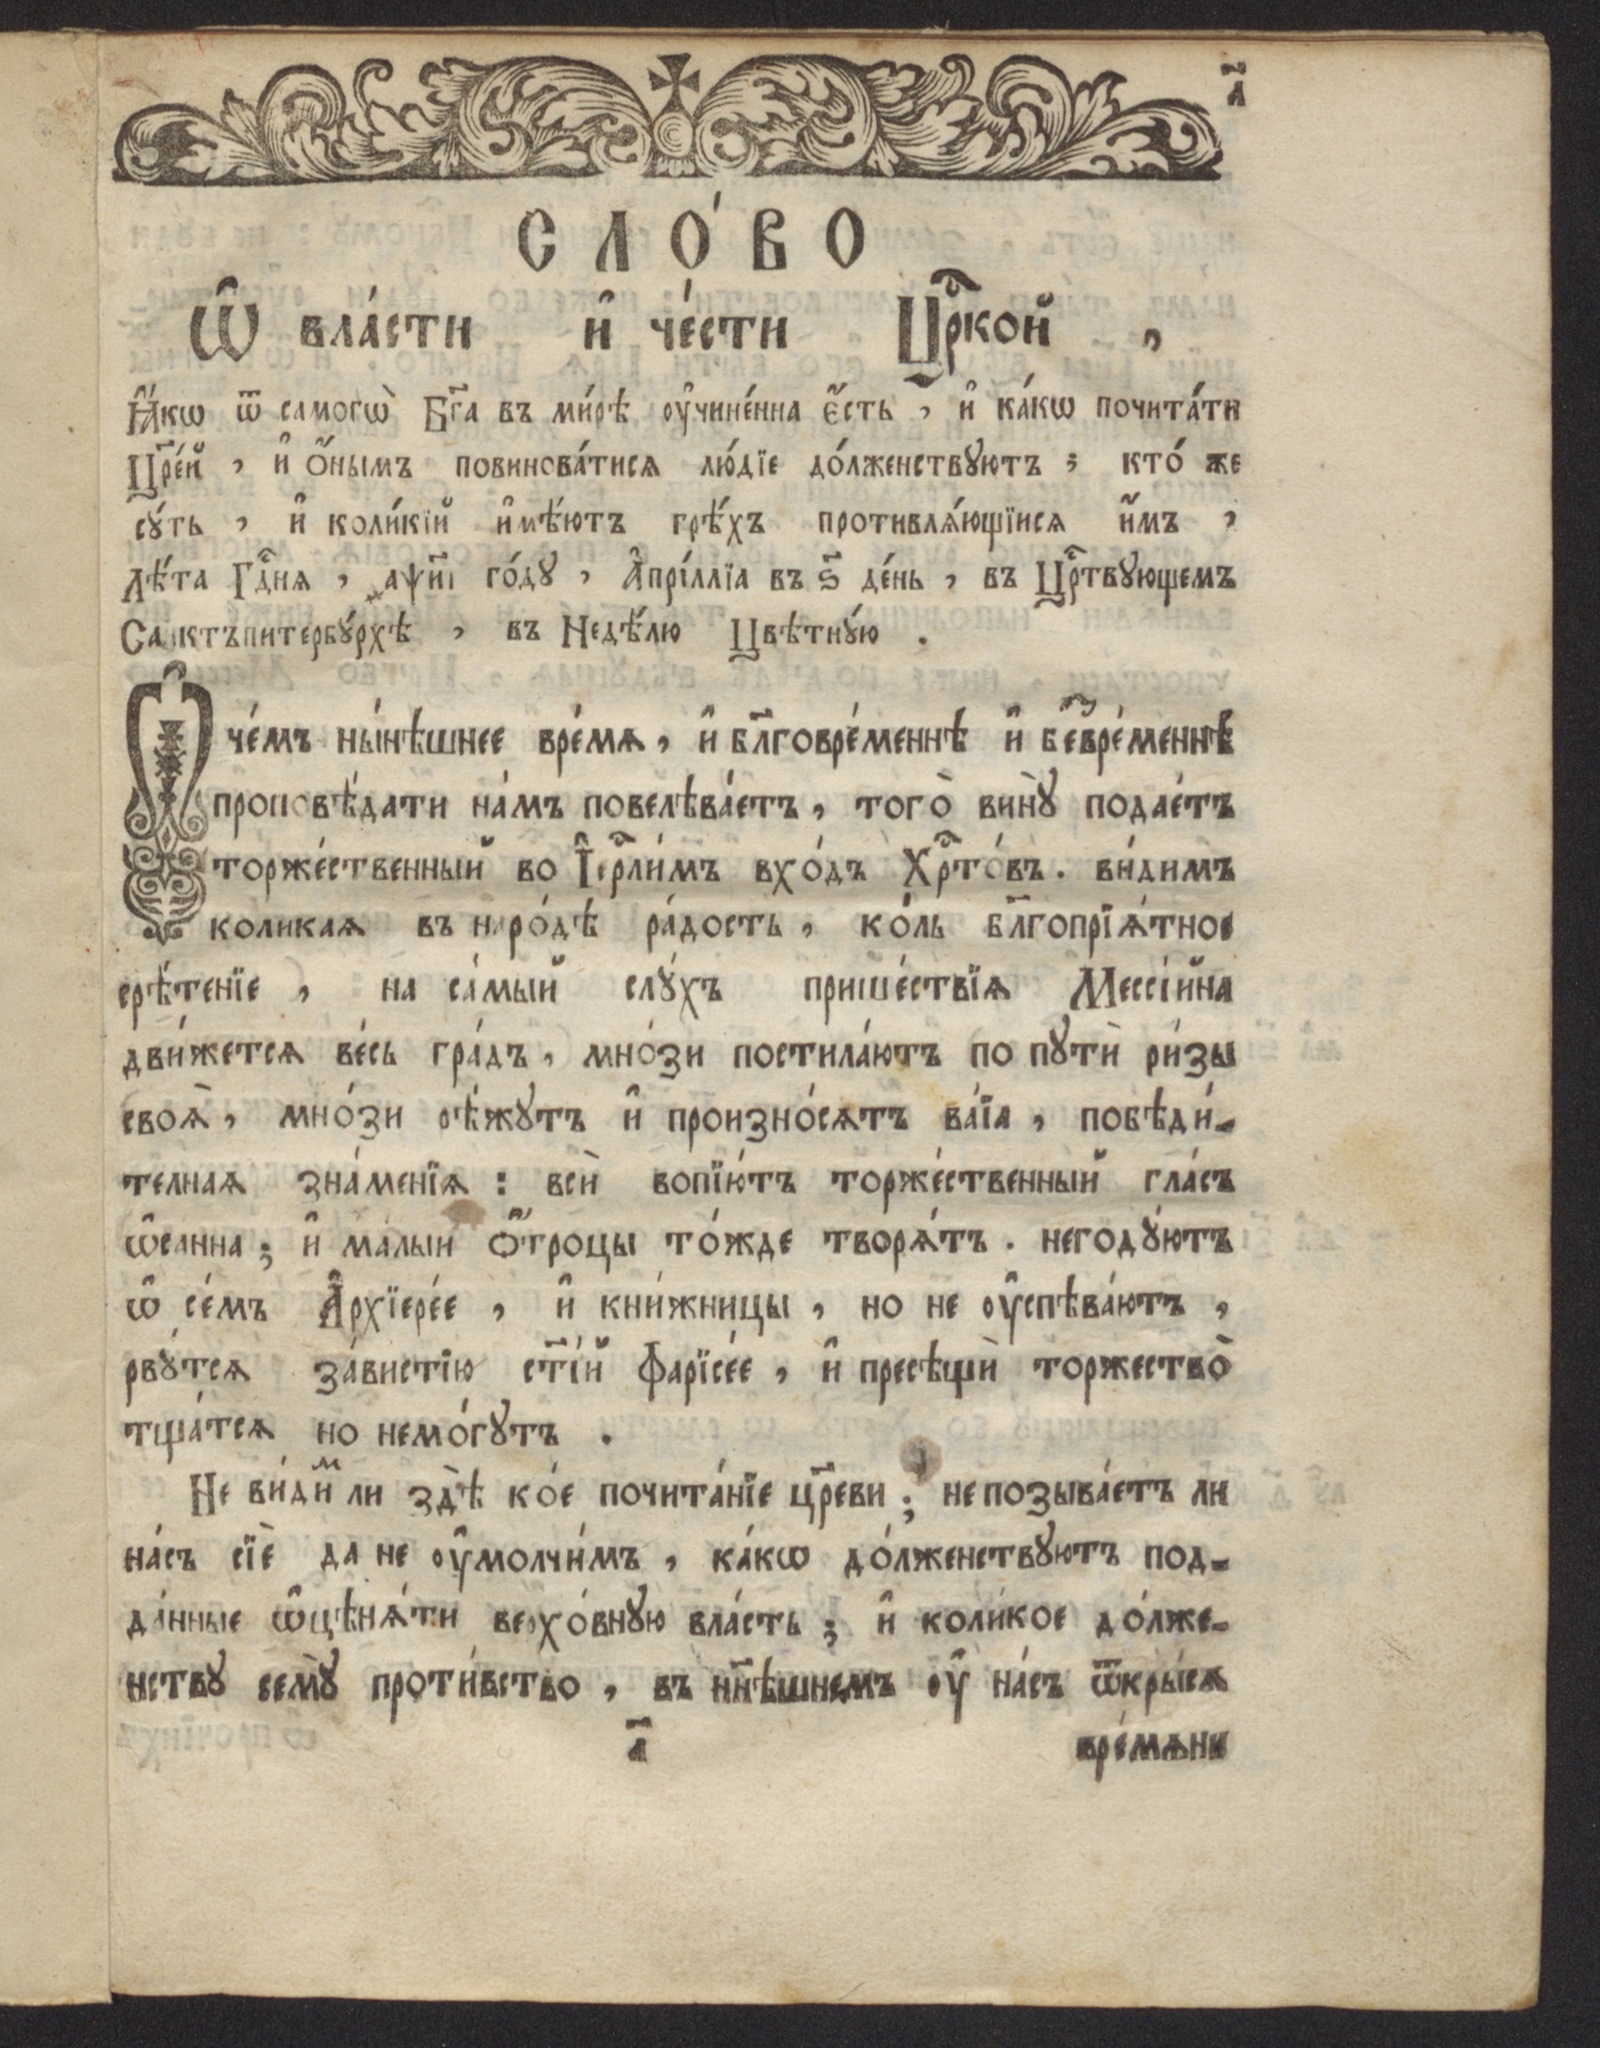 а҃
СЛО́ВО
Ѡ҆ вла́сти и҆ че́сти Црⷭ҇кой ,
Ꙗ҆́кѡ ѿ самогѡ̀ Бг҃а въ ми́рѣ ᲂу҆чине́нна є҆́сть , и҆ ка́кѡ почита́ти
Цр҃е́й , и҆ ѻ҆́нымъ повинова́тисѧ лю́дїе до́лженствꙋютъ ; кто́ же
сꙋ́ть , и҆ коли́кїй и҆мѣ́ютъ грѣ́хъ противлѧ́ющїисѧ и҆̀мъ ,
Лѣ́та Гдⷭ҇нѧ , ҂аѱи҃і го́дꙋ , А҆прі́ллїа въ ѕ҃ де́нь , въ Црⷭ҇твꙋющемъ
Санктъпитербꙋ́рхѣ , въ Недѣ́лю Цвѣ́тнꙋю .
Ѽ че́мъ ны́нѣшнее вре́мѧ , и҆ бл҃говре́меннѣ и҆ беⷥвре́меннѣ
проповѣ́дати на́мъ повелѣва́етъ , того̀ винꙋ̀ подае́тъ
торже́ственный во І҆ерⷭ҇ли́мъ вхо́дъ Хрⷭ҇то́въ . ви́димъ
коликаѧ въ наро́дѣ ра́дость , ко́ль бл҃гопрїѧ́тное
срѣ́тенїе , на са́мый слꙋ́хъ прише́ствїѧ Мессі́йна
дви́жетсѧ ве́сь гра́дъ , мно́зи постила́ютъ по пꙋтѝ ри́зы
своѧ̀ , мно́зи рѣ́жꙋтъ и҆ произно́сѧтъ ва́їа , побѣди́-
телнаѧ зна́менїѧ : всѝ вопїю́тъ торже́ственный гла́съ
ѡ҆са́нна ; и҆ ма́лыи ѻ҆́троцы то́жде творѧ́тъ . негодꙋ́ютъ
ѡ҆ се́мъ А҆рхїере́е , и҆ кни́жницы , но не ᲂу҆спѣва́ютъ ,
рвꙋ́тсѧ за́вистїю ст҃і́й Фарїсе́е , и҆ пресѣщѝ торжество̀
тща́тсѧ но немо́гꙋтъ .
Не ви́диⷨ ли здѣ̀ ко́е почита́нїе цр҃еви ; не позыва́етъ ли
на́съ сїѐ да не ᲂу҆молчи́мъ , ка́кѡ до́лженствꙋютъ под-
да́нные ѡ҆цѣнѧ́ти верхо́внꙋю вла́сть ; и҆ коли́кое до́лже-
нствꙋ семꙋ̀ проти́вство , въ нн҃ѣшнемъ ᲂу҆ на́съ ѿкры́сѧ
а҃
вре́мѧни